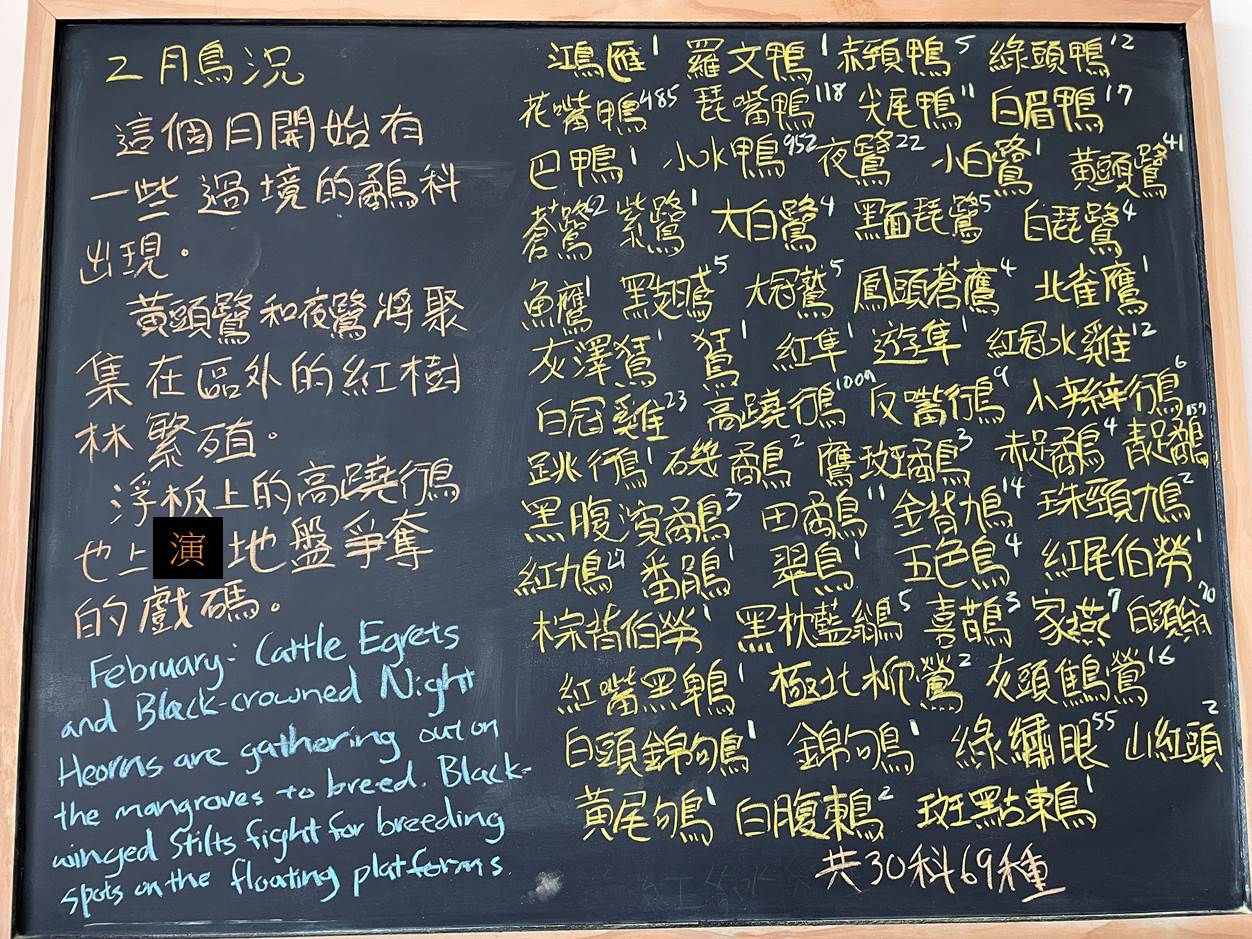 2月鳥況
這個月開始有
一些過境的鷸科
出現。
黃頭鷺和夜鷺將聚
集在區外的紅樹
林繁殖。
浮板上的高蹺行鳥
也上演地盤爭奪
的戲碼。
February: Cattle Egrets
and Black-crowned Night
Heorns are gathering out on
the mangroves to breed. Black-
winged Stilts fight for breeding
spots on the floating platforms.
鴻雁1 羅文鴨1 赤頸鴨5 綠頭鴨12
花嘴鴨485 琵嘴鴨118 尖尾鴨11 白眉鴨17
巴鴨1 小水鴨952 夜鷺22 小白鷺1 黃頭鷺41
蒼鷺62 紫鷺1 大白鷺4 黑面琵鷺5 白琵鷺4
魚鷹1 黑翅鳶5 大冠鷲5 鳳頭蒼鷹4 北雀鷹1
灰澤鵟1 鵟1 紅隼1 遊隼1 紅冠水雞12
白冠雞23 高蹺行鳥1009 反嘴行鳥9 小辮行鳥6
跳行鳥1 磯鷸2 鷹斑鷸3 赤足鷸4 青足鷸157
黑腹濱鷸3 田鷸11 金背鳩14 珠頸鳩2
紅鳩27 番鵑1 翠鳥1 五色鳥4 紅尾伯勞1
棕背伯勞1 黑枕藍鶲5 喜鵲3 家燕7 白頭翁70
紅嘴黑鵯1 極北柳鶯2 灰頭鷦鶯16
白頭錦鴝1 錦鴝1 綠繡眼55 山紅頭2
黃尾鴝1 白腹鶇2 斑點鶇1
共30科69種